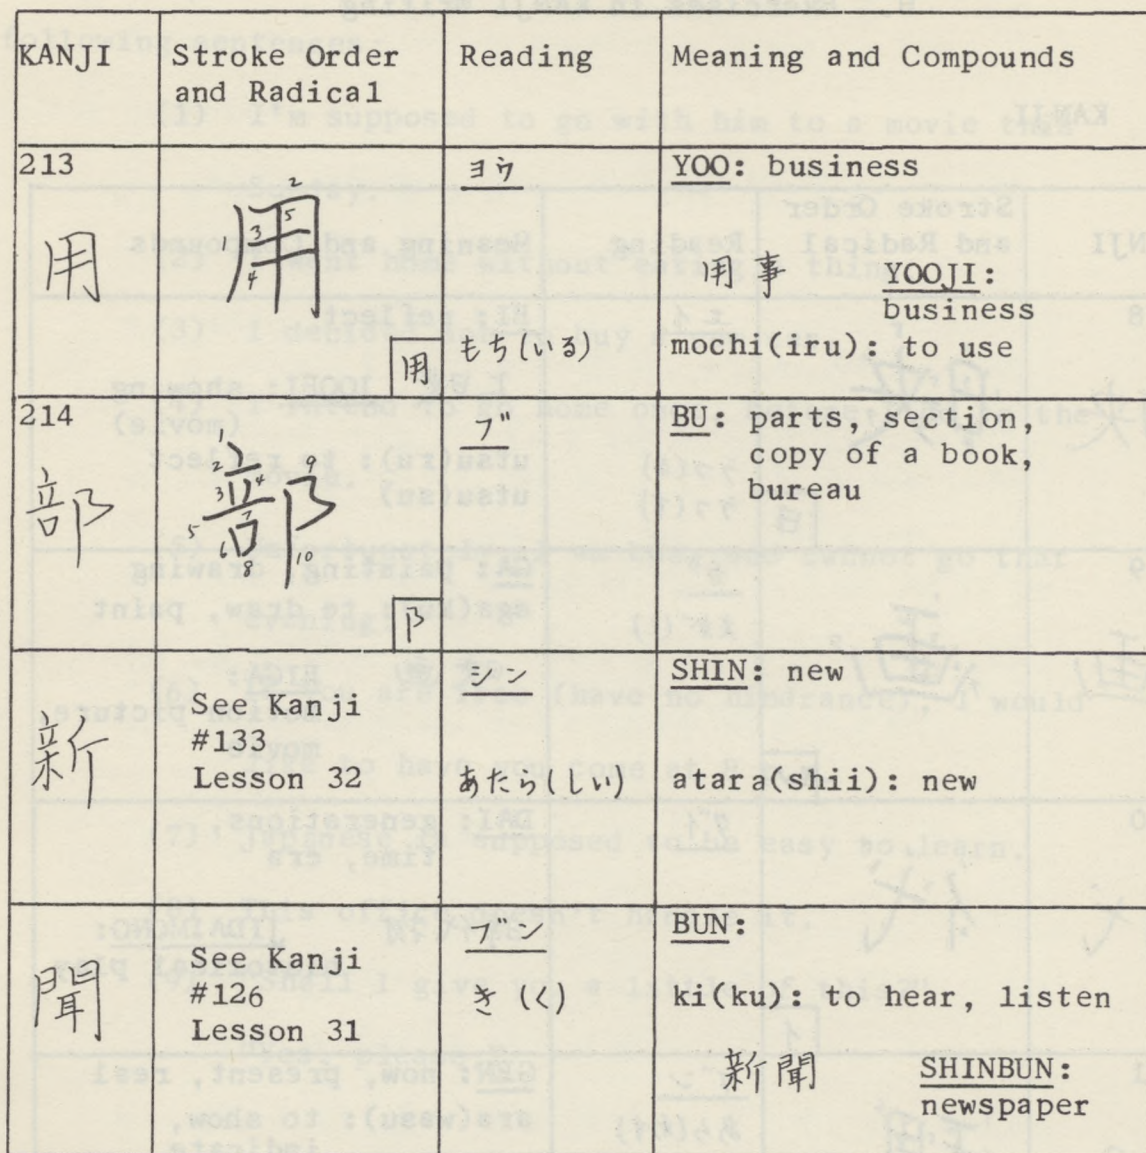 KANJI
Stroke Order
and Radical
Reading
Meaning and Compounds
213
用
用
2
3
5
4
用
ヨウ
もち(いる)
YOO: business
用事 YOOJI:
business
mochi(iru): to use
214
部
部
1
2
3
4
5
6
7
8
9
10
阝
ブ
BU: parts, section,
copy of a book,
bureau
新
See Kanji
#133
Lesson 32
シン
あたら(しい)
SHIN: new
atara(shii): new
聞
See Kanji
#126
Lesson 31
ブン
き(く)
BUN:
ki(ku): to hear, listen
新聞 SHINBUN:
newspaper